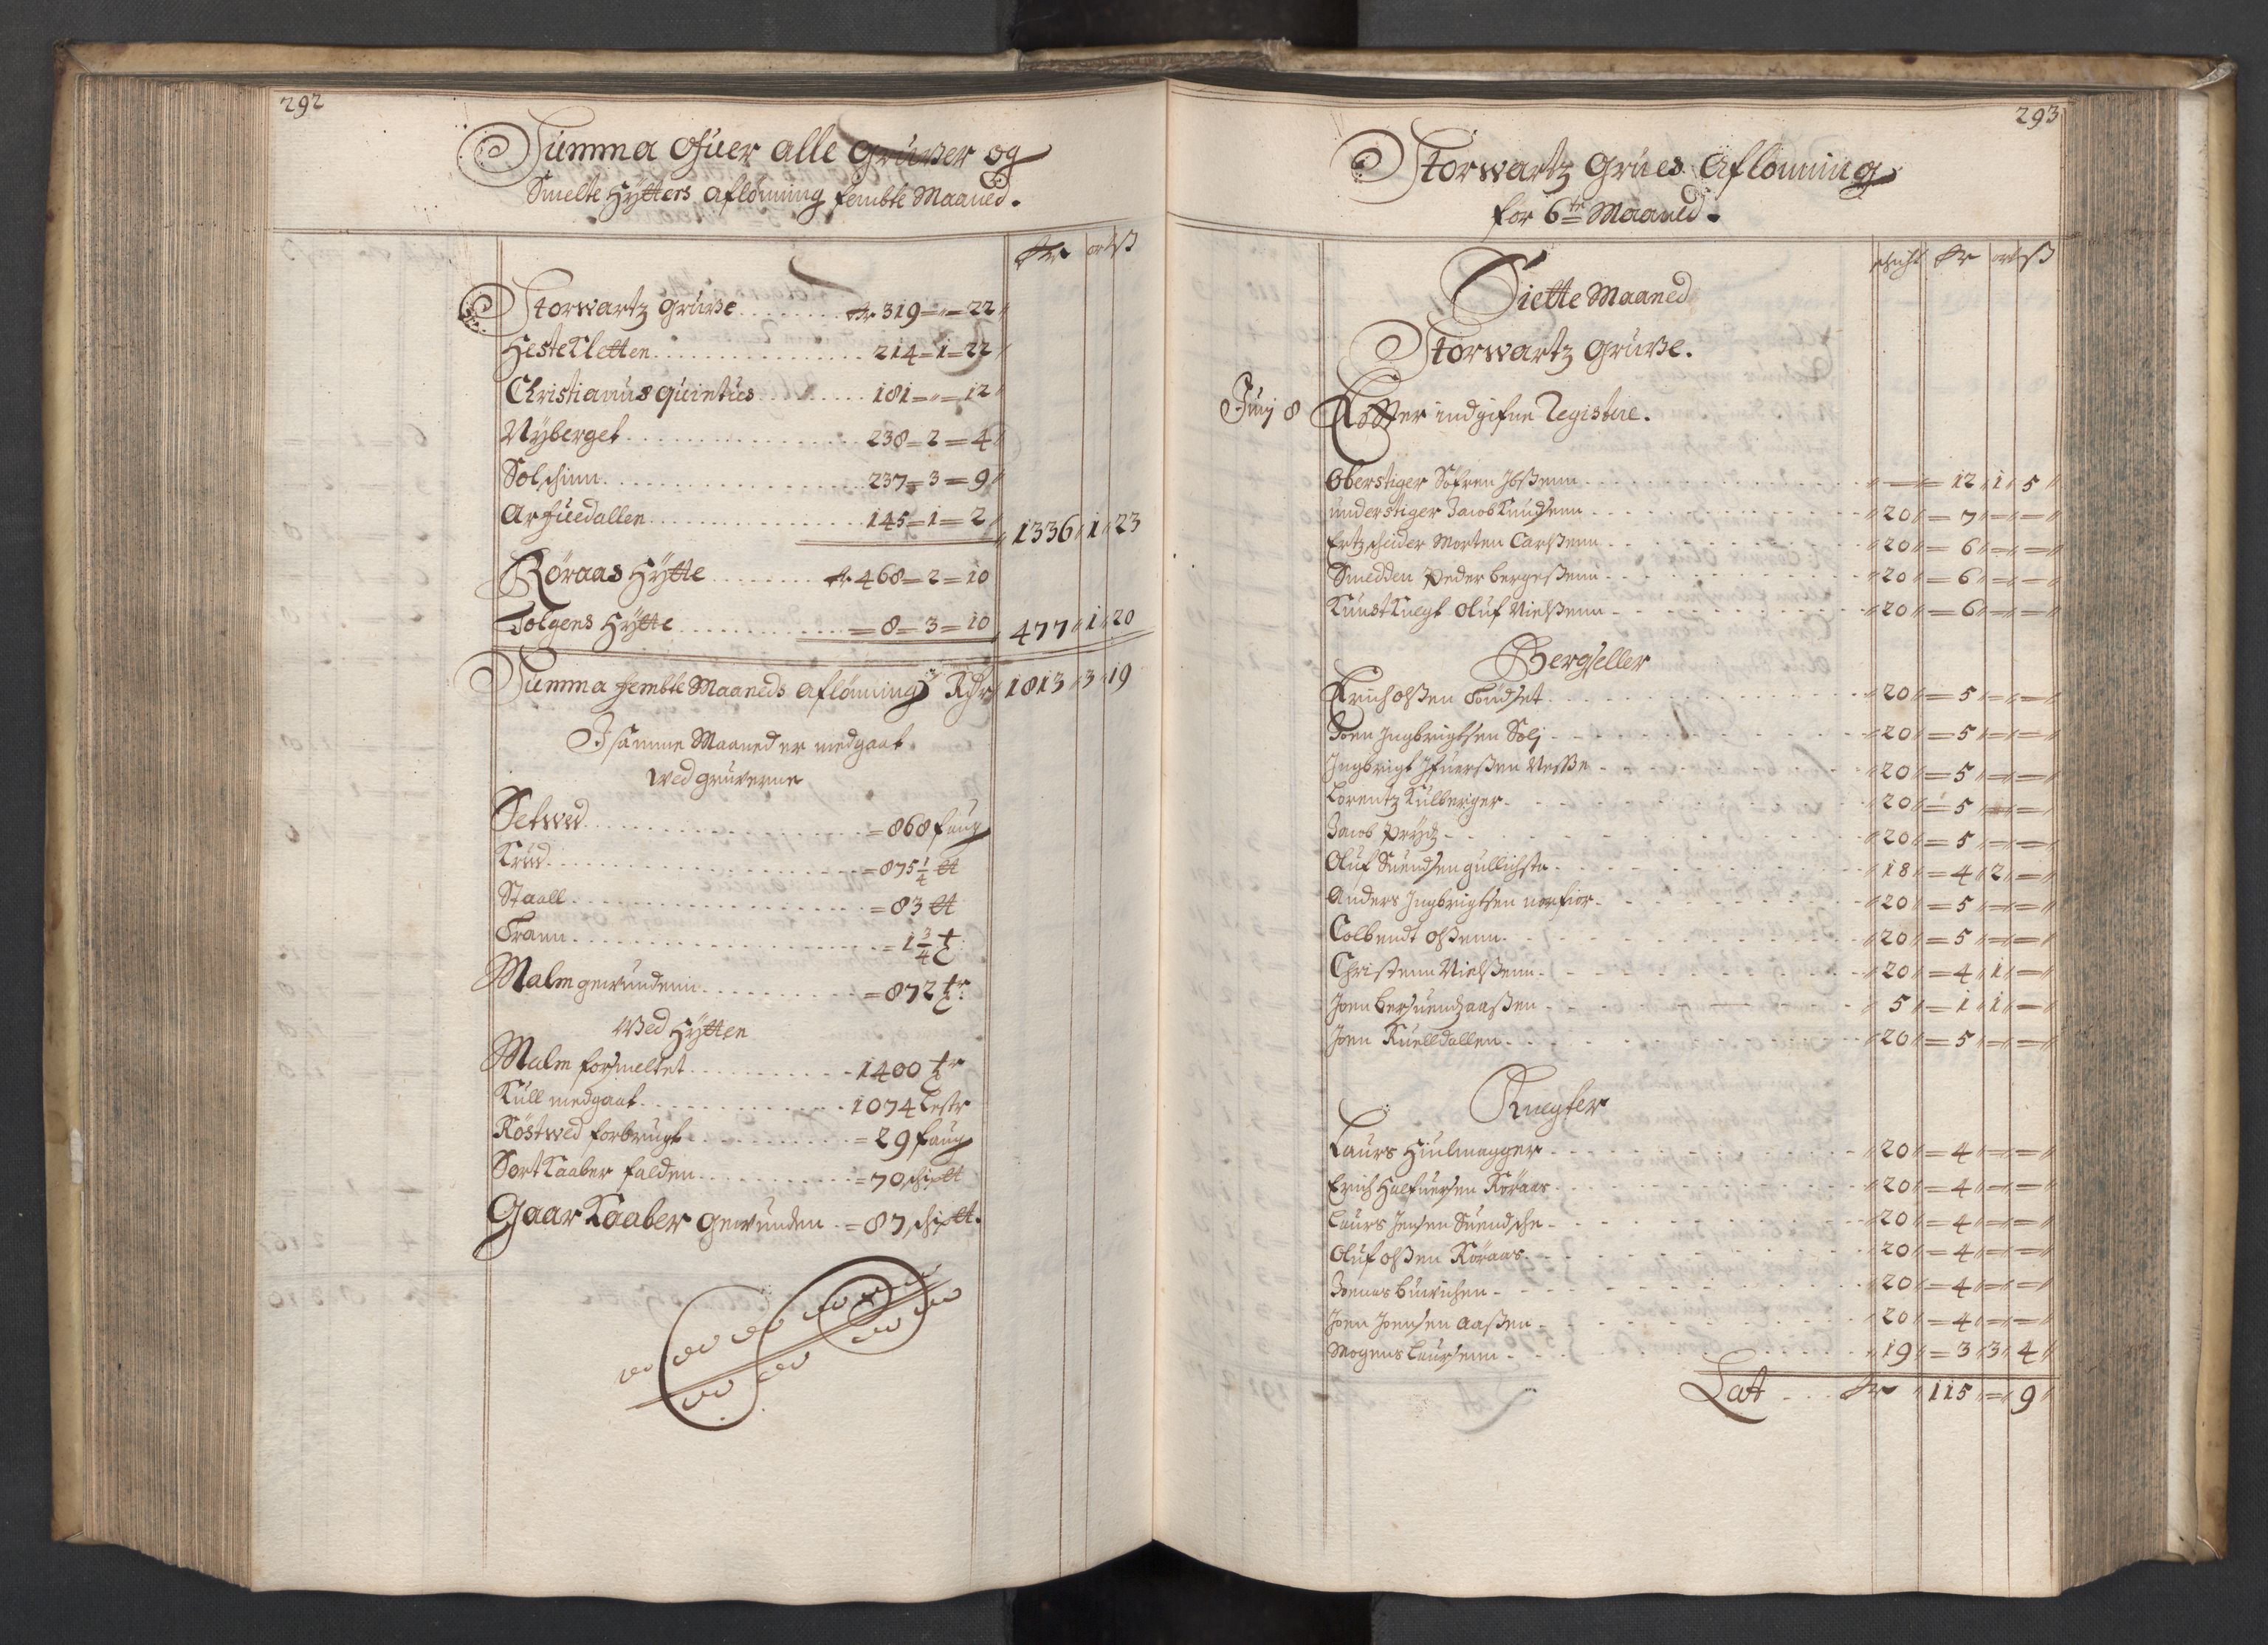 292
Summa Ofuer alle Gruber og
Smelte Hÿtters aflønning fembte Maaned.
Rdr ort ß
Storwartz Grube . . . . Rdr 319 = " = 22
HesteKletten . . . . 214 = 1 = 22
Christianus Quintus . . . . 181 = " = 12
Nÿberget . . . . 238 = 2 = 4
Solschinn . . . . 237 = 3 = 9
Arfuedallen . . . . 145 = 1 = 2 " 1336 " 1 " 23
Røraas Hÿtte . . . . Rdr 468 = 2 = 10
Tolgens Hÿtte . . . . = 8 = 3 = 10 " 477 " 1 " 20
Summa fembte Maaneds aflønning Rdr 1813 " 3 " 19
J samme Maaned er medgaat
wed gruverne
Setwed . . . . = 868 faug
Krud . . . . = 875 1/4 ℔
Staall . . . . = 83 ℔
Trann . . . . = 1 3/4 t
Malm gewundenn . . . . = 872 tr
Wed Hÿtten
Malm forsmeltet . . . . 1400 tr
Kull medgaat . . . . 1074 Lestr
Røstwed forbrugt . . . . = 29 faug
Sort Kaaber falden . . . . = 70 schi℔
Gaar Kaaber gewunden . = 87 schi℔.
293
Storwartz Grues Aflønning
for 6te Maaned.
schicht Rdr ort ß
Siette Maaned
Storwartz Grube.
Junj 8 Efter indgifne Registere.
Oberstiger Søfren Jbßenn . . . . " — " = 12 " 1 " 5 "
understiger Jacob Knudsenn . . . . " 20 " = 7 " = " = "
Ertzscheider Morten Carßenn . . . . " 20 " = 6 " = " = "
Smedden Peder bergeßenn . . . . " 20 " = 6 " = " = "
KunstKnegt Oluf Nielßenn . . . . " 20 " = 6 " = " = "
Bergseller
Erich Olßen Tøndset . . . . " 20 " = 5 " = " = "
Joen Jngbrigtsen Solj . . . . " 20 " = 5 " = " = "
Jngbrigt Jfuerßen Neße . . . . " 20 " = 5 " = " = "
Lorentz Kulberger . . . . " 20 " = 5 " = " = "
Jacob Prÿdtz . . . . " 20 " = 5 " = " = "
Oluf Suendsen gullichsta . . . . " 18 " = 4 " 2 " = "
Anders Jngbrigtsen norfior . . . . " 20 " = 5 " = " = "
Colbendt Olßenn . . . . " 20 " = 5 " = " = "
Christenn Nielßenn . . . . " 20 " = 4 " 1 " = "
Joen bersuendzaaßen . . . . " 5 " = 1 " 1 " = "
Joen Kuelldallen . . . . " 20 " = 5 " = " = "
Knegter
Laurs Hiulmagger . . . . " 20 " = 4 " = " = "
Erich Halfuersen Røraas . . . . " 20 " = 4 " = " = "
Laurs Jensen Suendsche . . . . " 20 " = 4 " = " = "
Oluf Olßen Røraas . . . . " 20 " = 4 " = " = "
Joenas . . . . " 20 " = 4 " = " = "
Joen Joensen Aaßen . . . . " 20 " = 4 " = " = "
Mogens Laursenn . . . . " 19 " = 3 " 3 " 4 "
Lat . . . Rdr " 115 " = " 9 "